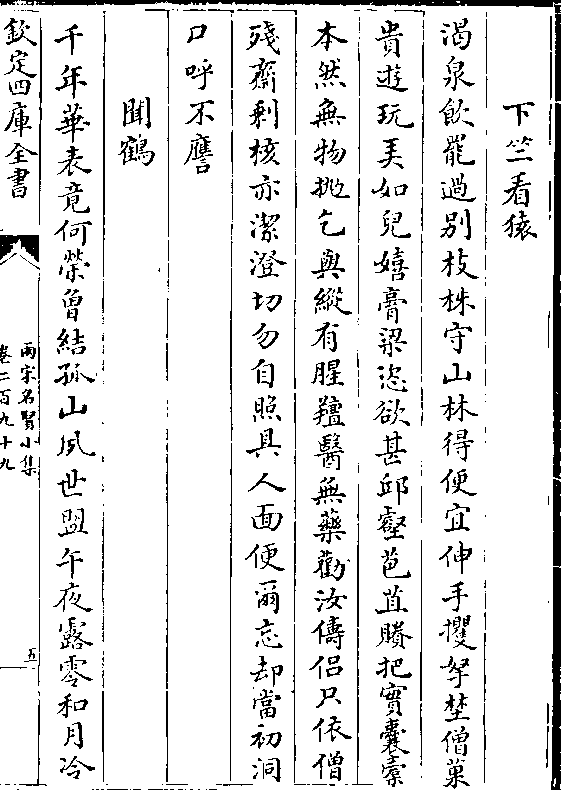 下竺看猿
渴泉飲罷過別枝株守山林得便宜伸手攫拏埜僧菓
貴遊玩美如兒嬉膏粱恣欲甚邱壑苞苴賸把實囊橐
本然無物拋乞與縱有腥羶醫無藥勸汝儔侣只依僧
殘齋剩核亦潔澄切勿自照具人面便爾忘却當初洞
口呼不譍
聞鶴
千年華表竟何榮曾結孤山夙世盟午夜露零和月冷
欽定四庫全書
兩宋名賢小集
卷二百九十九
五